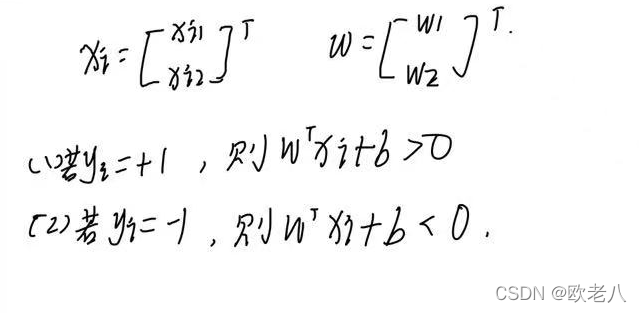 xi = [xi1 xi2]^T   w = [w1 w2]^T.
(1)若yi=+1,则w^T xi+b>0
(2)若yi=-1,则w^T xi+b<0.
CSDN @欧老八